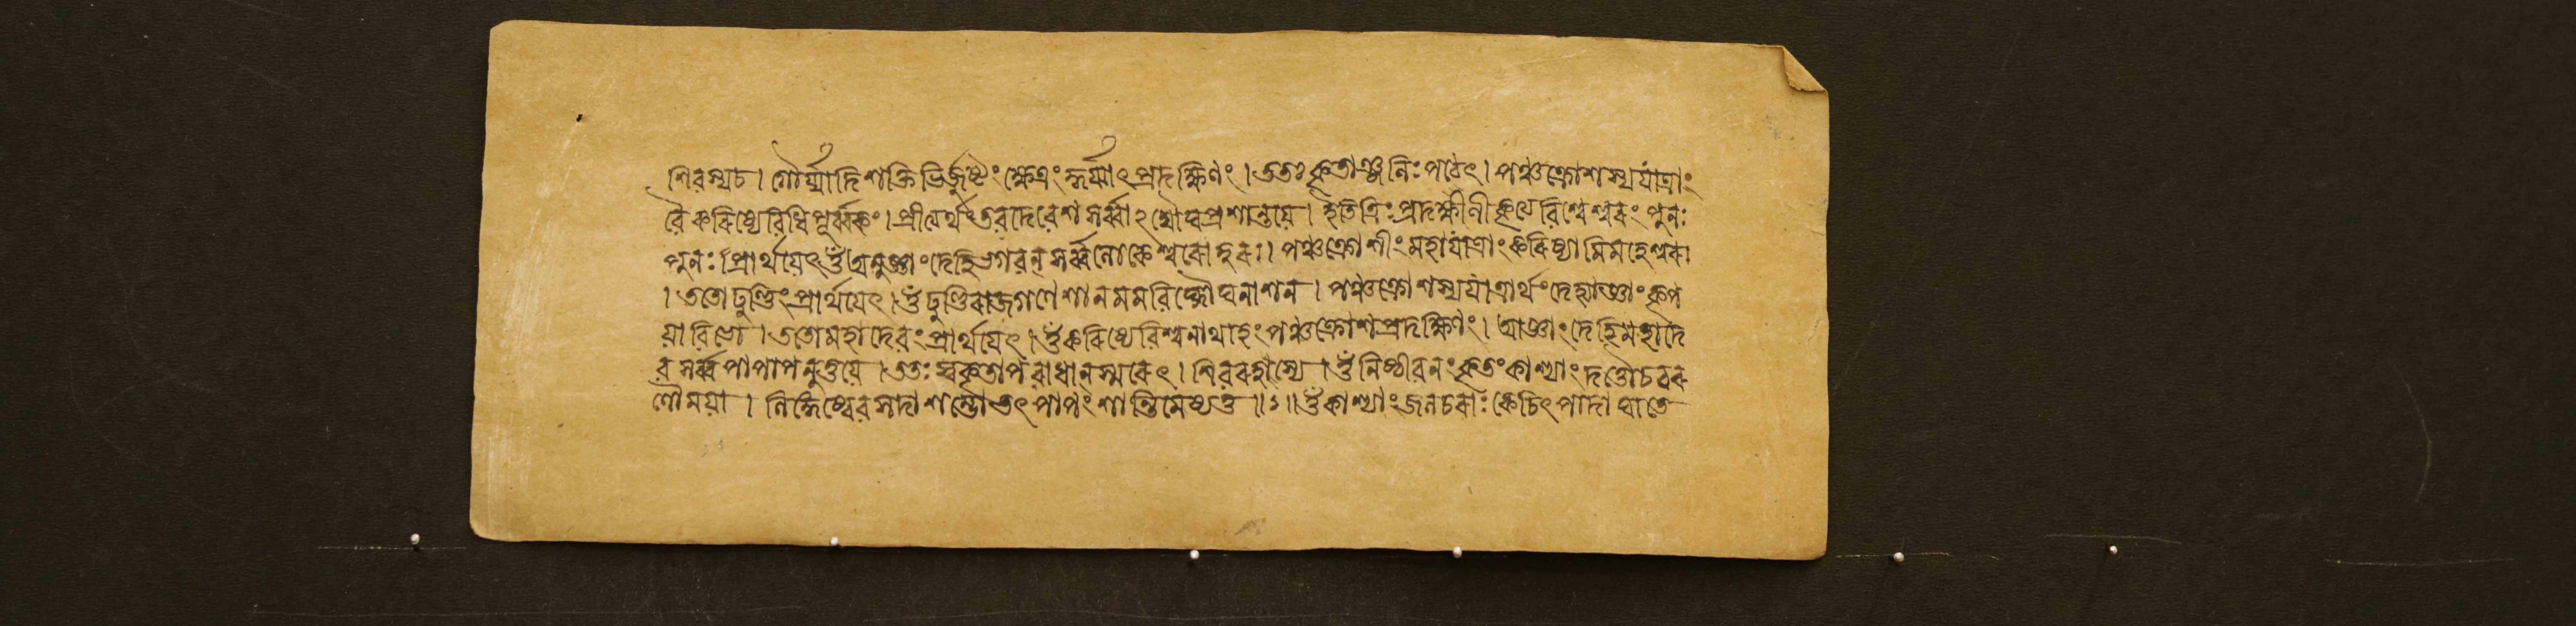 শিবস্যচ। গৌর্য্যাদিশক্তিভির্জুষ্টং ক্ষেত্রং কুর্য্যাৎ প্রদক্ষিণং। ততঃ কৃতাঞ্জলিঃ পঠেৎ। পঞ্চক্রোশস্যযাত্রাং
বৈ করিষ্যে বিধিপূর্ব্বকং। প্রীত্যর্থং তব দেবেশ সর্ব্বাঽঘৌঘপ্রশান্তয়ে। ইতি ত্রিঃ প্রদক্ষীণীকৃত্য বিশ্বেশ্বরং পুনঃ
পুনঃ প্রার্থয়েৎ ওঁ অনুজ্ঞাং দেহি ভগবন্ সর্ব্বলোকেশ্বরো গুরুঃ। পঞ্চক্রোশীং মহাযাত্রাং করিষ্যামি মহেশ্বর।
। ততো ঢুণ্ঢিং প্রার্থয়েৎ। ওঁ ঢুণ্ঢিরাজগণেশান মম বিঘ্নৌঘনাশন। পঞ্চক্রোশস্যযাত্রার্থং দেহ্যাজ্ঞাং কৃপ
য়া বিভো। ততো মহাদেবং প্রার্থয়েৎ। ওঁ করিষ্যে বিশ্বনাথাহং পঞ্চক্রোশপ্রদক্ষিণং। আজ্ঞাং দেহি মহাদে
ব সর্ব্বপাপাপনুত্তয়ে। ততঃ স্বকৃতাপরাধান্ স্মরেৎ। শিবরহস্যে। ওঁ নিষ্ঠীবনং কৃতং কাশ্যাং দত্তৌ চ চর
ণৌ ময়া। সদা শম্ভো তৎ পাপং শান্তিমেষ্যতু॥ ১॥ ওঁ কাশ্যাং জলচরাঃ কেচিৎ পাদাঘাতে